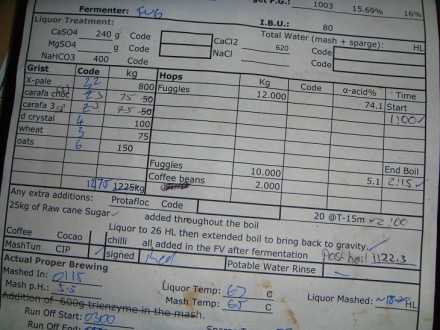 Target F.G.: 1003 15.69% 16%
Fermenter: FV8
Liquor Treatment: I.B.U.: 80
CaSO4 240 g Code CaCl2 Total Water (mash + sparge): HL
MgSO4 g Code NaCl 620 Code
NaHCO3 400 Code Code
Grist Code kg Hops Kg Code α-acid% Time
X-pale 800 Fuggles 12.000 74.1 Start
carafa choc 23 75 50 1:00 ✓
carafa 3sp 23 75 50
d crystal 4 100
wheat 3 75
oats 6 150
Fuggles 10.000 End Boil
1475 1225kg Coffee beans 2.000 5.1 2:15 ✓
Any extra additions: Protafloc Code 20 @T-15m ✓ 2:00
25kg of Raw cane Sugar ✓ added throughout the boil
Liquor to 26 HL then extended boil to bring back to gravity. ✓
Coffee Cocao chilli all added in the FV after fermentation Post boil 1122.3
MashTun CIP ✓ signed Potable Water Rinse
Actual Proper Brewing
Mashed In: 0115 Liquor Temp: 67 C Liquor Mashed: HL
Mash p.H.: 5.5 Mash Temp: 65 C
Addition of 600g trienzyme in the mash.
Run Off Start: 0300
Run Off End: